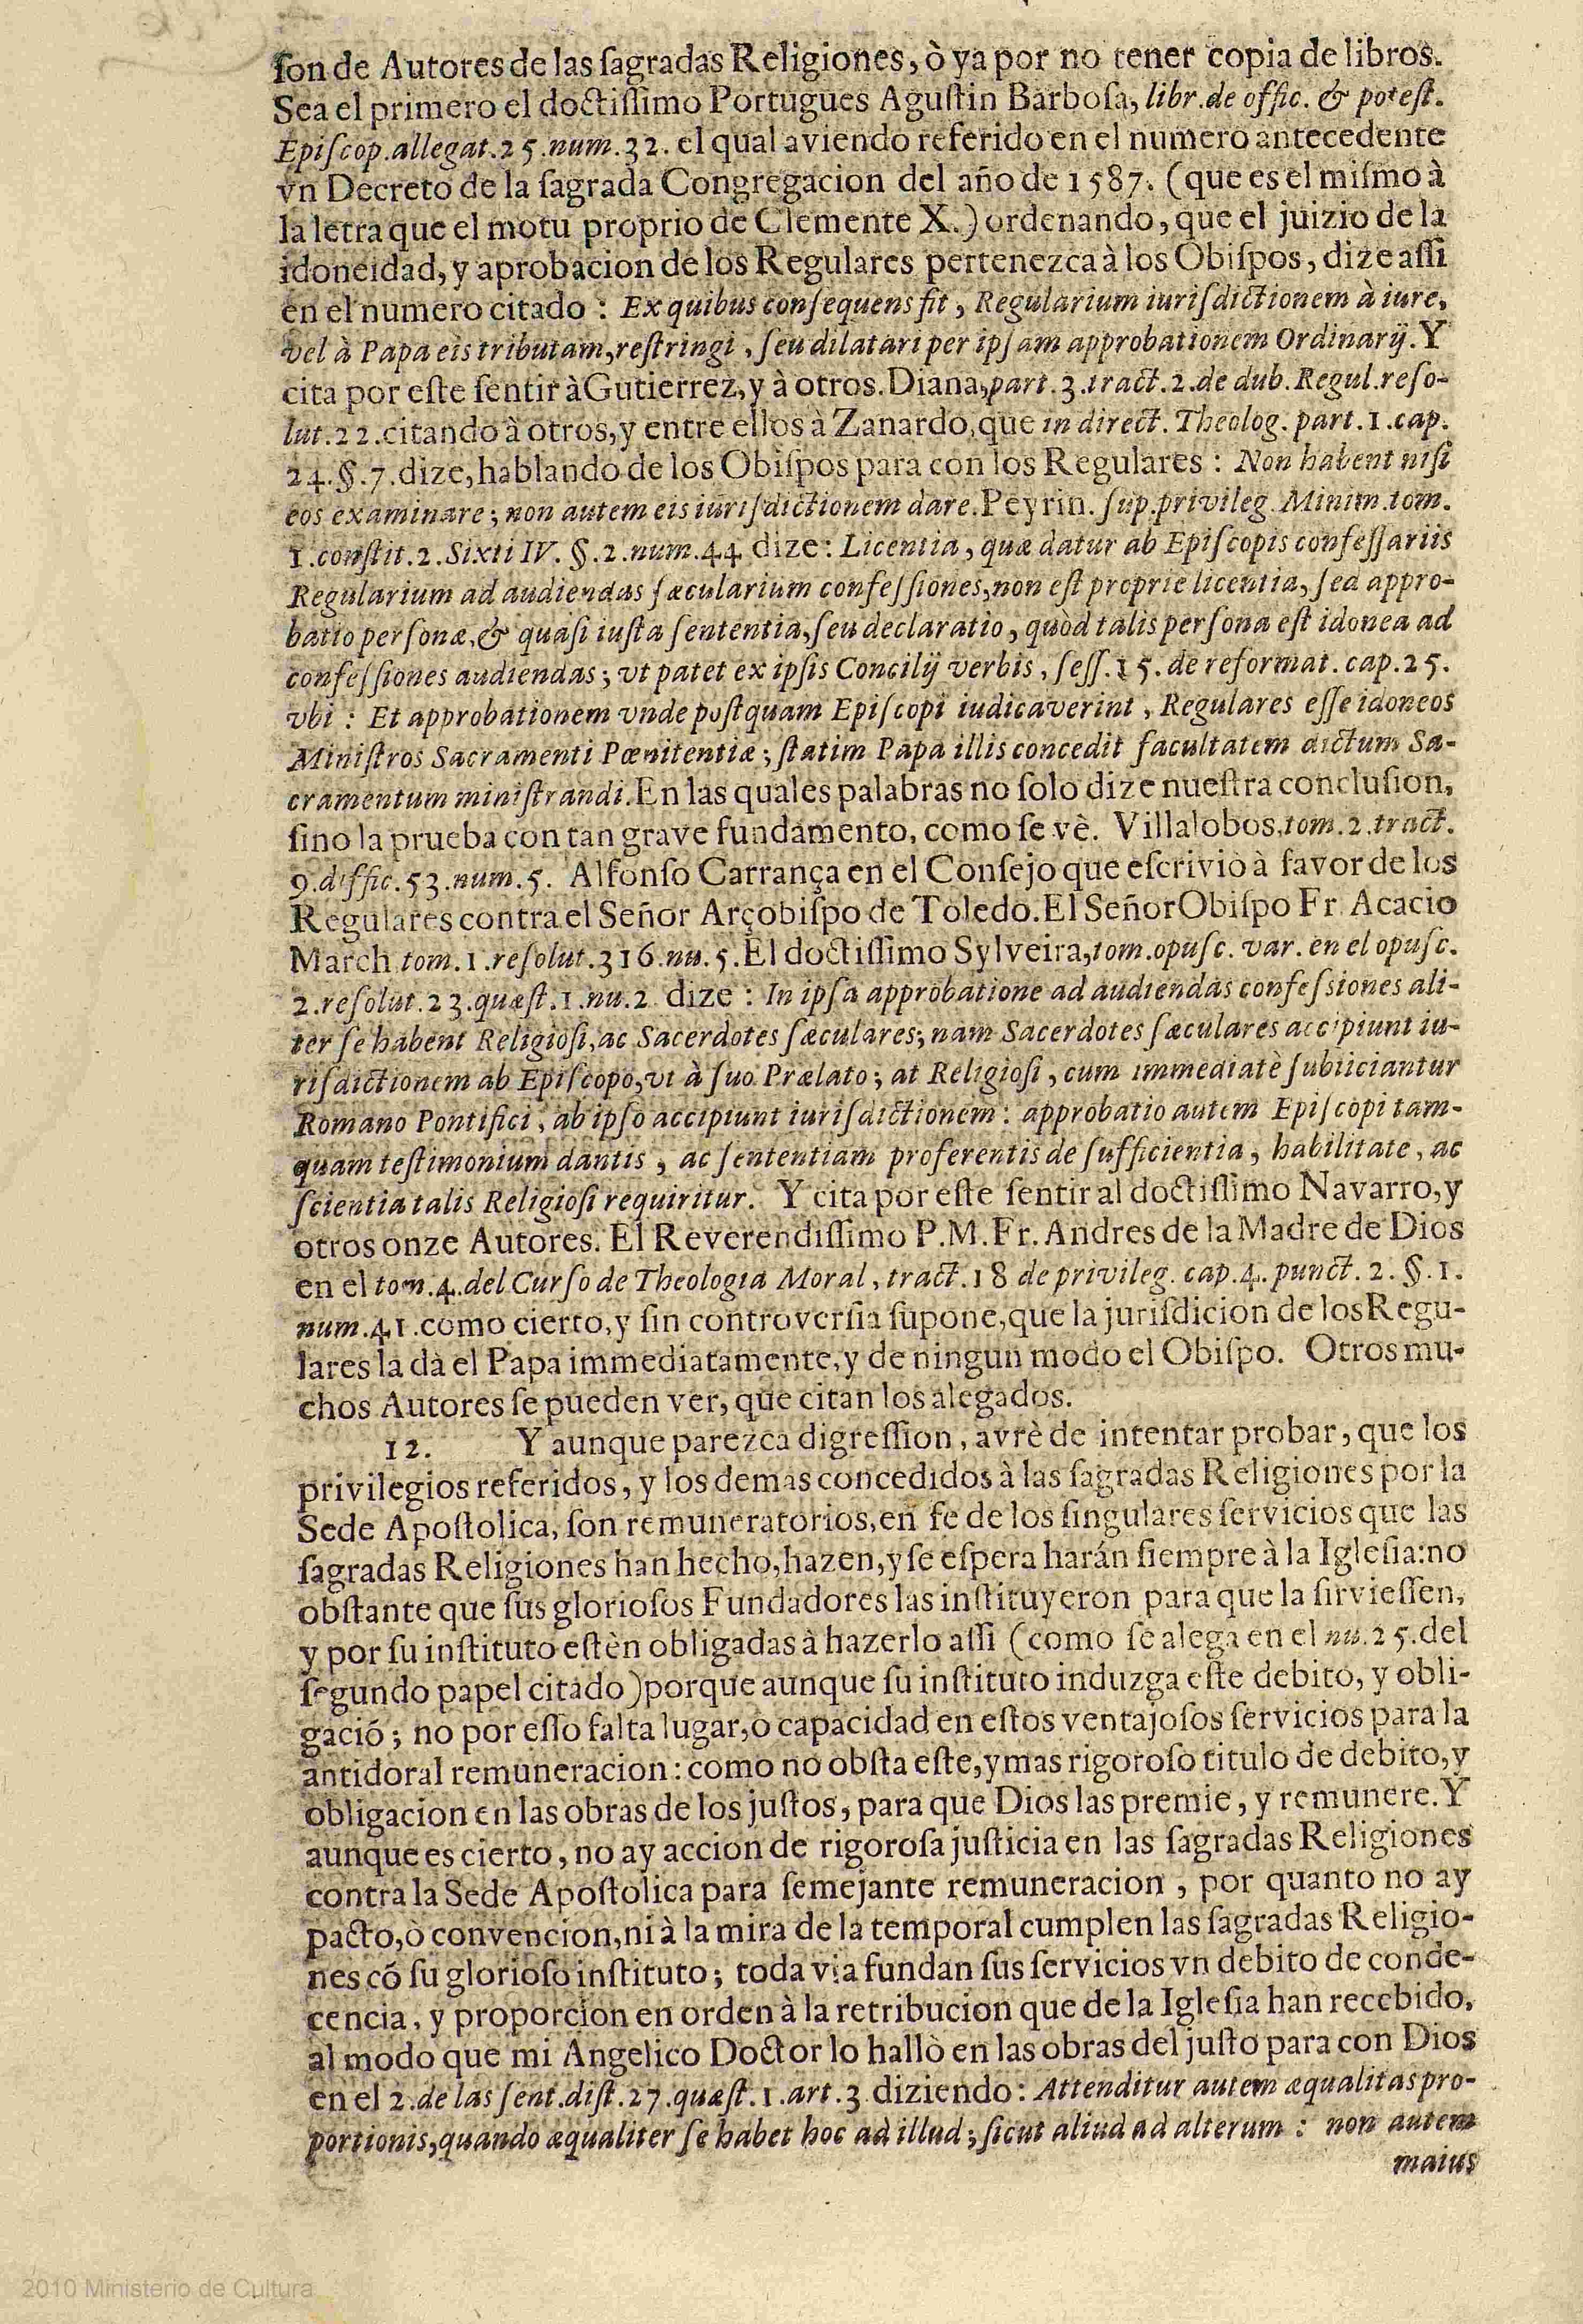 ſon de Autores de las ſagradas Religiones, ò ya por no tener copia de libros.
Sea el primero el doctiſſimo Portugues Aguſtin Barboſa, libr. de offic. & poteſt.
Epiſcop. allegat. 25. num. 32. el qual aviendo referido en el numero antecedente
vn Decreto de la ſagrada Congregacion del año de 1587. (que es el miſmo à
la letra que el motu proprio de Clemente X.) ordenando, que el juizio de la
idoneidad, y aprobacion de los Regulares pertenezca à los Obiſpos, dize aſſi
en el numero citado : Ex quibus conſequens fit, Regularium iuriſdictionem à iure,
vel à Papa eis tributam, reſtringi, ſeu dilatari per ipſam approbationem Ordinarij. Y
cita por eſte ſentir à Gutierrez, y à otros. Diana, part. 3. tract. 2. de dub. Regul. reſo-
lut. 22. citando à otros, y entre ellos à Zanardo, que in direct. Theolog. part. 1. cap.
24. §. 7. dize, hablando de los Obiſpos para con los Regulares : Non habent niſi
eos examinare; non autem eis iuriſdictionem dare. Peyrin. ſup. privileg. Minim. tom.
1. conſtit. 2. Sixti IV. §. 2. num. 44 dize: Licentia, quæ datur ab Epiſcopis confeſſariis
Regularium ad audiendas ſæcularium confeſſiones, non eſt proprie licentia, ſed appro-
batio perſonæ, & quaſi iuſta ſententia, ſeu declaratio, quòd talis perſona eſt idonea ad
confeſſiones audiendas; vt patet ex ipſis Concilij verbis, ſeſſ. 15. de reformat. cap. 25.
vbi : Et approbationem vnde poſtquam Epiſcopi iudicaverint, Regulares eſſe idoneos
Miniſtros Sacramenti Pœnitentiæ; ſtatim Papa illis concedit facultatem dictum Sa-
cramentum miniſtrandi. En las quales palabras no ſolo dize nueſtra concluſion,
ſino la prueba con tan grave fundamento, como ſe vè. Villalobos, tom. 2. tract.
9. diffic. 53. num. 5. Alfonſo Carrança en el Conſejo que eſcriviò à favor de los
Regulares contra el Señor Arçobiſpo de Toledo. El Señor Obiſpo Fr. Acacio
March tom. 1. reſolut. 316. nu. 5. El doctiſſimo Sylveira, tom. opuſc. var. en el opuſc.
2. reſolut. 23. quæſt. 1. nu. 2 dize : In ipſa approbatione ad audiendas confeſſiones ali-
ter ſe habent Religioſi, ac Sacerdotes ſæculares; nam Sacerdotes ſæculares accipiunt iu-
riſdictionem ab Epiſcopo, vt à ſuo Prælato; at Religioſi, cum immediatè ſubiiciantur
Romano Pontifici, ab ipſo accipiunt iuriſdictionem : approbatio autem Epiſcopi tam-
quam teſtimonium dantis, ac ſententiam proferentis de ſufficientia, habilitate, ac
ſcientia talis Religioſi requiritur. Y cita por eſte ſentir al doctiſſimo Navarro, y
otros onze Autores. El Reverendiſſimo P. M. Fr. Andres de la Madre de Dios
en el tom. 4. del Curſo de Theologia Moral, tract. 18 de privileg. cap. 4. punct. 2. §. 1.
num. 41. como cierto, y ſin controverſia ſupone, que la juriſdicion de los Regu-
lares la dà el Papa immediatamente, y de ningun modo el Obiſpo. Otros mu-
chos Autores ſe pueden ver, que citan los alegados.
12. Y aunque parezca digreſſion, avrè de intentar probar, que los
privilegios referidos, y los demas concedidos à las ſagradas Religiones por la
Sede Apoſtolica, ſon remuneratorios, en fe de los ſingulares ſervicios que las
ſagradas Religiones han hecho, hazen, y ſe eſpera harán ſiempre à la Igleſia: no
obſtante que ſus glorioſos Fundadores las inſtituyeron para que la ſirvieſſen,
y por ſu inſtituto eſtèn obligadas à hazerlo aſſi (como ſe alega en el nu. 25. del
ſegundo papel citado) porque aunque ſu inſtituto induzga eſte debito, y obli-
gaciõ; no por eſſo falta lugar, o capacidad en eſtos ventajoſos ſervicios para la
antidoral remuneracion: como no obſta eſte, y mas rigoroſo titulo de debito, y
obligacion en las obras de los juſtos, para que Dios las premie, y remunere. Y
aunque es cierto, no ay accion de rigoroſa juſticia en las ſagradas Religiones
contra la Sede Apoſtolica para ſemejante remuneracion, por quanto no ay
pacto, ò convencion, ni à la mira de la temporal cumplen las ſagradas Religio-
nes cõ ſu glorioſo inſtituto; toda via fundan ſus ſervicios vn debito de conde-
cencia, y proporcion en orden à la retribucion que de la Igleſia han recebido,
al modo que mi Angelico Doctor lo hallò en las obras del juſto para con Dios
en el 2. de las ſent. diſt. 27. quæſt. 1. art. 3 diziendo : Attenditur autem æqualitas pro-
portionis, quando æqualiter ſe habet hoc ad illud; ſicut aliud ad alterum : non autem
maius
2010 Ministerio de Cultura